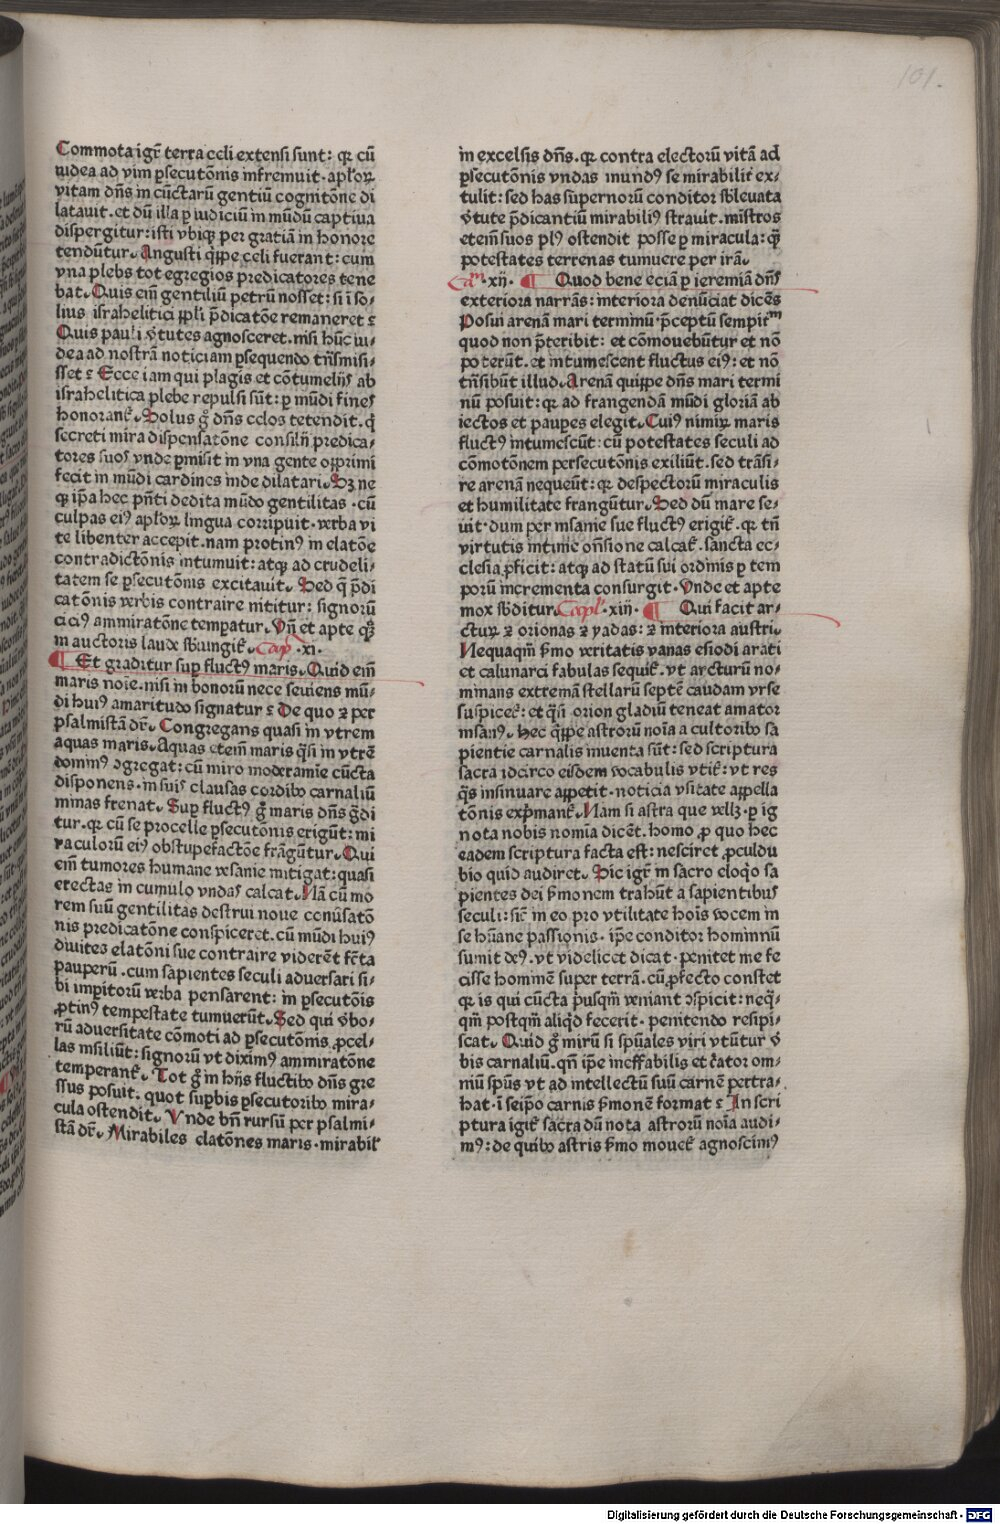 101.
Commota igr̄ terra celi extensi sunt: qꝛ cū
iudea ad vim ꝑsecutōnis infremuit. aplōꝝ
vitam dn̄s in cūctarū gentiū cognitōne di
latauit. et dū illa ꝑ iudiciū in mūdū captiua
dispergitur: isti vbiqꝫ per gratiā in honore
tendūtur. Angusti qͥppe celi fuerant: cum
vna plebs tot egregios predicatores tene
bat. Quis em̄ gentiliū petrū nosset: si i so⸗
lius israhelitici ppl̓i p̄dicatōe remaneret ⁊
Quis pauli v̓tutes agnosceret. nisi hūc iu⸗
dea ad nostrā noticiam ꝑsequendo trāsmisi⸗
sset ⁊ Ecce iam qui plagis et cōtumelijs ab
israhelitica plebe repulsi sūt: ꝑ mūdi fines
honorant᷑. Solus gͦ dn̄s celos tetendit. qͥ
secreti mira dispensatōne consilij predica⸗
tores suos vnde ꝑmisit in vna gente opprimi
fecit in mūdi cardines inde dilatari. Sꝫ ne
qꝫ ip̄a hec pn̄ti dedita mūdo gentilitas . cū
culpas eiꝰ aplōꝝ lingua corripuit. verba vi
te libenter accepit. nam protinꝰ in elatōe
contradictōnis intumuit: atqꝫ ad crudeli⸗
tatem se ꝑsecutōnis excitauit. Sed q̄ p̄di
catōnis verbis contraire nititur: signorū
ei ciꝰ ammiratōne temꝑatur. Vn̄ et apte qꝫ
in auctoris laude sb̓iungit᷑. Cap .xi.
¶ Et graditur suꝑ fluctꝰ maris. Quid em̄
maris noīe. nisi in bonorū nece seuiens mū⸗
di huiꝰ amaritudo signatur ⁊ De quo ⁊ per
psalmistā dr̄. Congregans quasi in vtrem
aquas maris. Aquas etem maris qͣsi in vtrē
dominꝰ ↄgregat: cū miro moderamīe cūcta
disponens. in suis clausas cordibꝰ carnaliū
minas frenat. Suꝑ fluctꝰ gͦ maris dn̄s gͣdi
tur. qꝛ cū se procelle ꝑsecutōnis erigūt: mi
raculorū eiꝰ obstupefactōe frāgūtur. Qui
em̄ tumores humane vesanie mitigat: quasi
erectas in cumulo vndas calcat. Nā cū mo
rem suū gentilitas destrui noue conūsatō
nis predicatōne conspiceret. cū mūdi huiꝰ
diuites elatōni sue contraire viderēt fc̄ta
pauperū .cum sapientes seculi aduersari si⸗
bi imꝑitorū verba pensarent: in ꝑsecutōis
ꝓtinꝰ tempestate tumuerūt. Sed qui v̓bo⸗
rū aduersitate cōmoti ad ꝑsecutōnis ꝓcel⸗
las insiliūt: signorū vt diximꝰ ammiratōne
temperant᷑. Tot gͦ in hijs fluctibꝰ dn̄s gre
ssus posuit. quot suꝑbis ꝑsecutoribꝰ mira⸗
cula ostendit. Vnde bn̄ rursū per psalmi⸗
stā dr̄. Mirabiles elatōnes maris. mirabil᷑
in excelsis dn̄s. qꝛ contra electorū vitā ad
ꝑsecutōnis vndas mundꝰ se mirabilit᷑ ex⸗
tulit: sed has sūpernorū conditor sb̓leuata
v̓tute p̄dicantiū mirabiliꝰ strauit. mīstros
etem suos plꝰ ostendit posse ꝑ miracula: qͣꝫ
potestates terrenas tumuere per irā.
Cam .xij. ¶ Quod bene eciā ꝑ ieremiā dn̄s
exteriora narrās: interiora denūciat dicēs
Posui arenā mari terminū. p̄ceptū sempit᷑m
quod non p̄teribit: et cōmouebūtur et nō
poterūt. et intumescent fluctus eiꝰ: et nō
trāsibūt illud. Arenā quippe dn̄s mari termi
nū posuit: qꝛ ad frangendā mūdi gloriā ab
iectos et pauꝑes elegit. Cuiꝰ nimiꝝ maris
fluctꝰ intumescūt: cū potestates seculi ad
cōmotōnem persecutōnis exiliūt. sed trāsi⸗
re arenā nequeūt: qꝛ despectorū miraculis
et humilitate frangūtur. Sed dū mare se⸗
uit. dum per insanie sue fluctꝰ erigit᷑. qꝛ tn̄
virtutis intime on̄sione calcat᷑. sancta ec⸗
clesia ꝓficit: atqꝫ ad statū sui ordinis ꝑ tem
porū incrementa consurgit. Vnde et apte
mox sb̓ditur. Capl̓ .xiij. ¶ Qui facit ar⸗
ctuꝝ ⁊ orionas ⁊ yadas: ⁊ interiora austri.
Nequaqm̄ s̓mo veritatis vanas esiodi arati
et calunarci fabulas sequit᷑. vt arcturū no⸗
minans extremā stellarū septē caudam vrse
suspicet᷑: et qͣsi orion gladiū teneat amator
insanꝰ. hec qͥppe astrorū noīa a cultoribꝰ sa
pientie carnalis inuenta sūt: sed scriptura
sacra idcirco eisdem vocabulis vtit᷑: vt res
qͣs insinuare appetit. noticia vsitate appella
tōnis exp̄mant᷑. Nam si astra que vellꝫ. ꝑ ig
nota nobis nomīa dicēt. homo ꝓ quo hec
eadem scriptura facta est: nesciret ꝓculdu
bio quid audiret. Sic igr̄ in sacro eloqͥo sa
pientes dei s̓monem trahūt a sapientibus
seculi: sic̄ in eo pro vtilitate hoīs vocem in
se hūane passionis. ip̄e conditor hominnū
sumit deꝰ. vt videlicet dicat. penitet me fe
cisse hominē super terrā. cū ꝓfecto constet
qꝛ is qui cūcta p̓usqm̄ veniant ↄspicit: neqͣ⸗
qm̄ postqm̄ aliqͥd fecerit. penitendo resipi⸗
scat. Quid gͦ mirū si spūales viri vtūtur v̓
bis carnaliū. qn̄ ip̄e ineffabilis et c̓ator om⸗
niū spūs vt ad intellectū suū carnē pertra⸗
hat. i seip̄o carnis s̓monē format ⁊ In scri
ptura igit᷑ sacra dū nota astrorū noīa audi⸗
mꝰ: de quibꝰ astris s̓mo mouet᷑ agnoscimꝰ
Digitalisierung gefördert durch die Deutsche Forschungsgemeinschaft - DFG